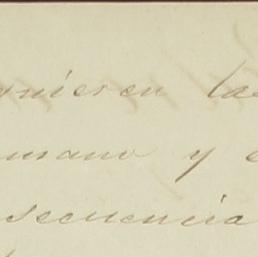 nieren la
mano y e
secuencia